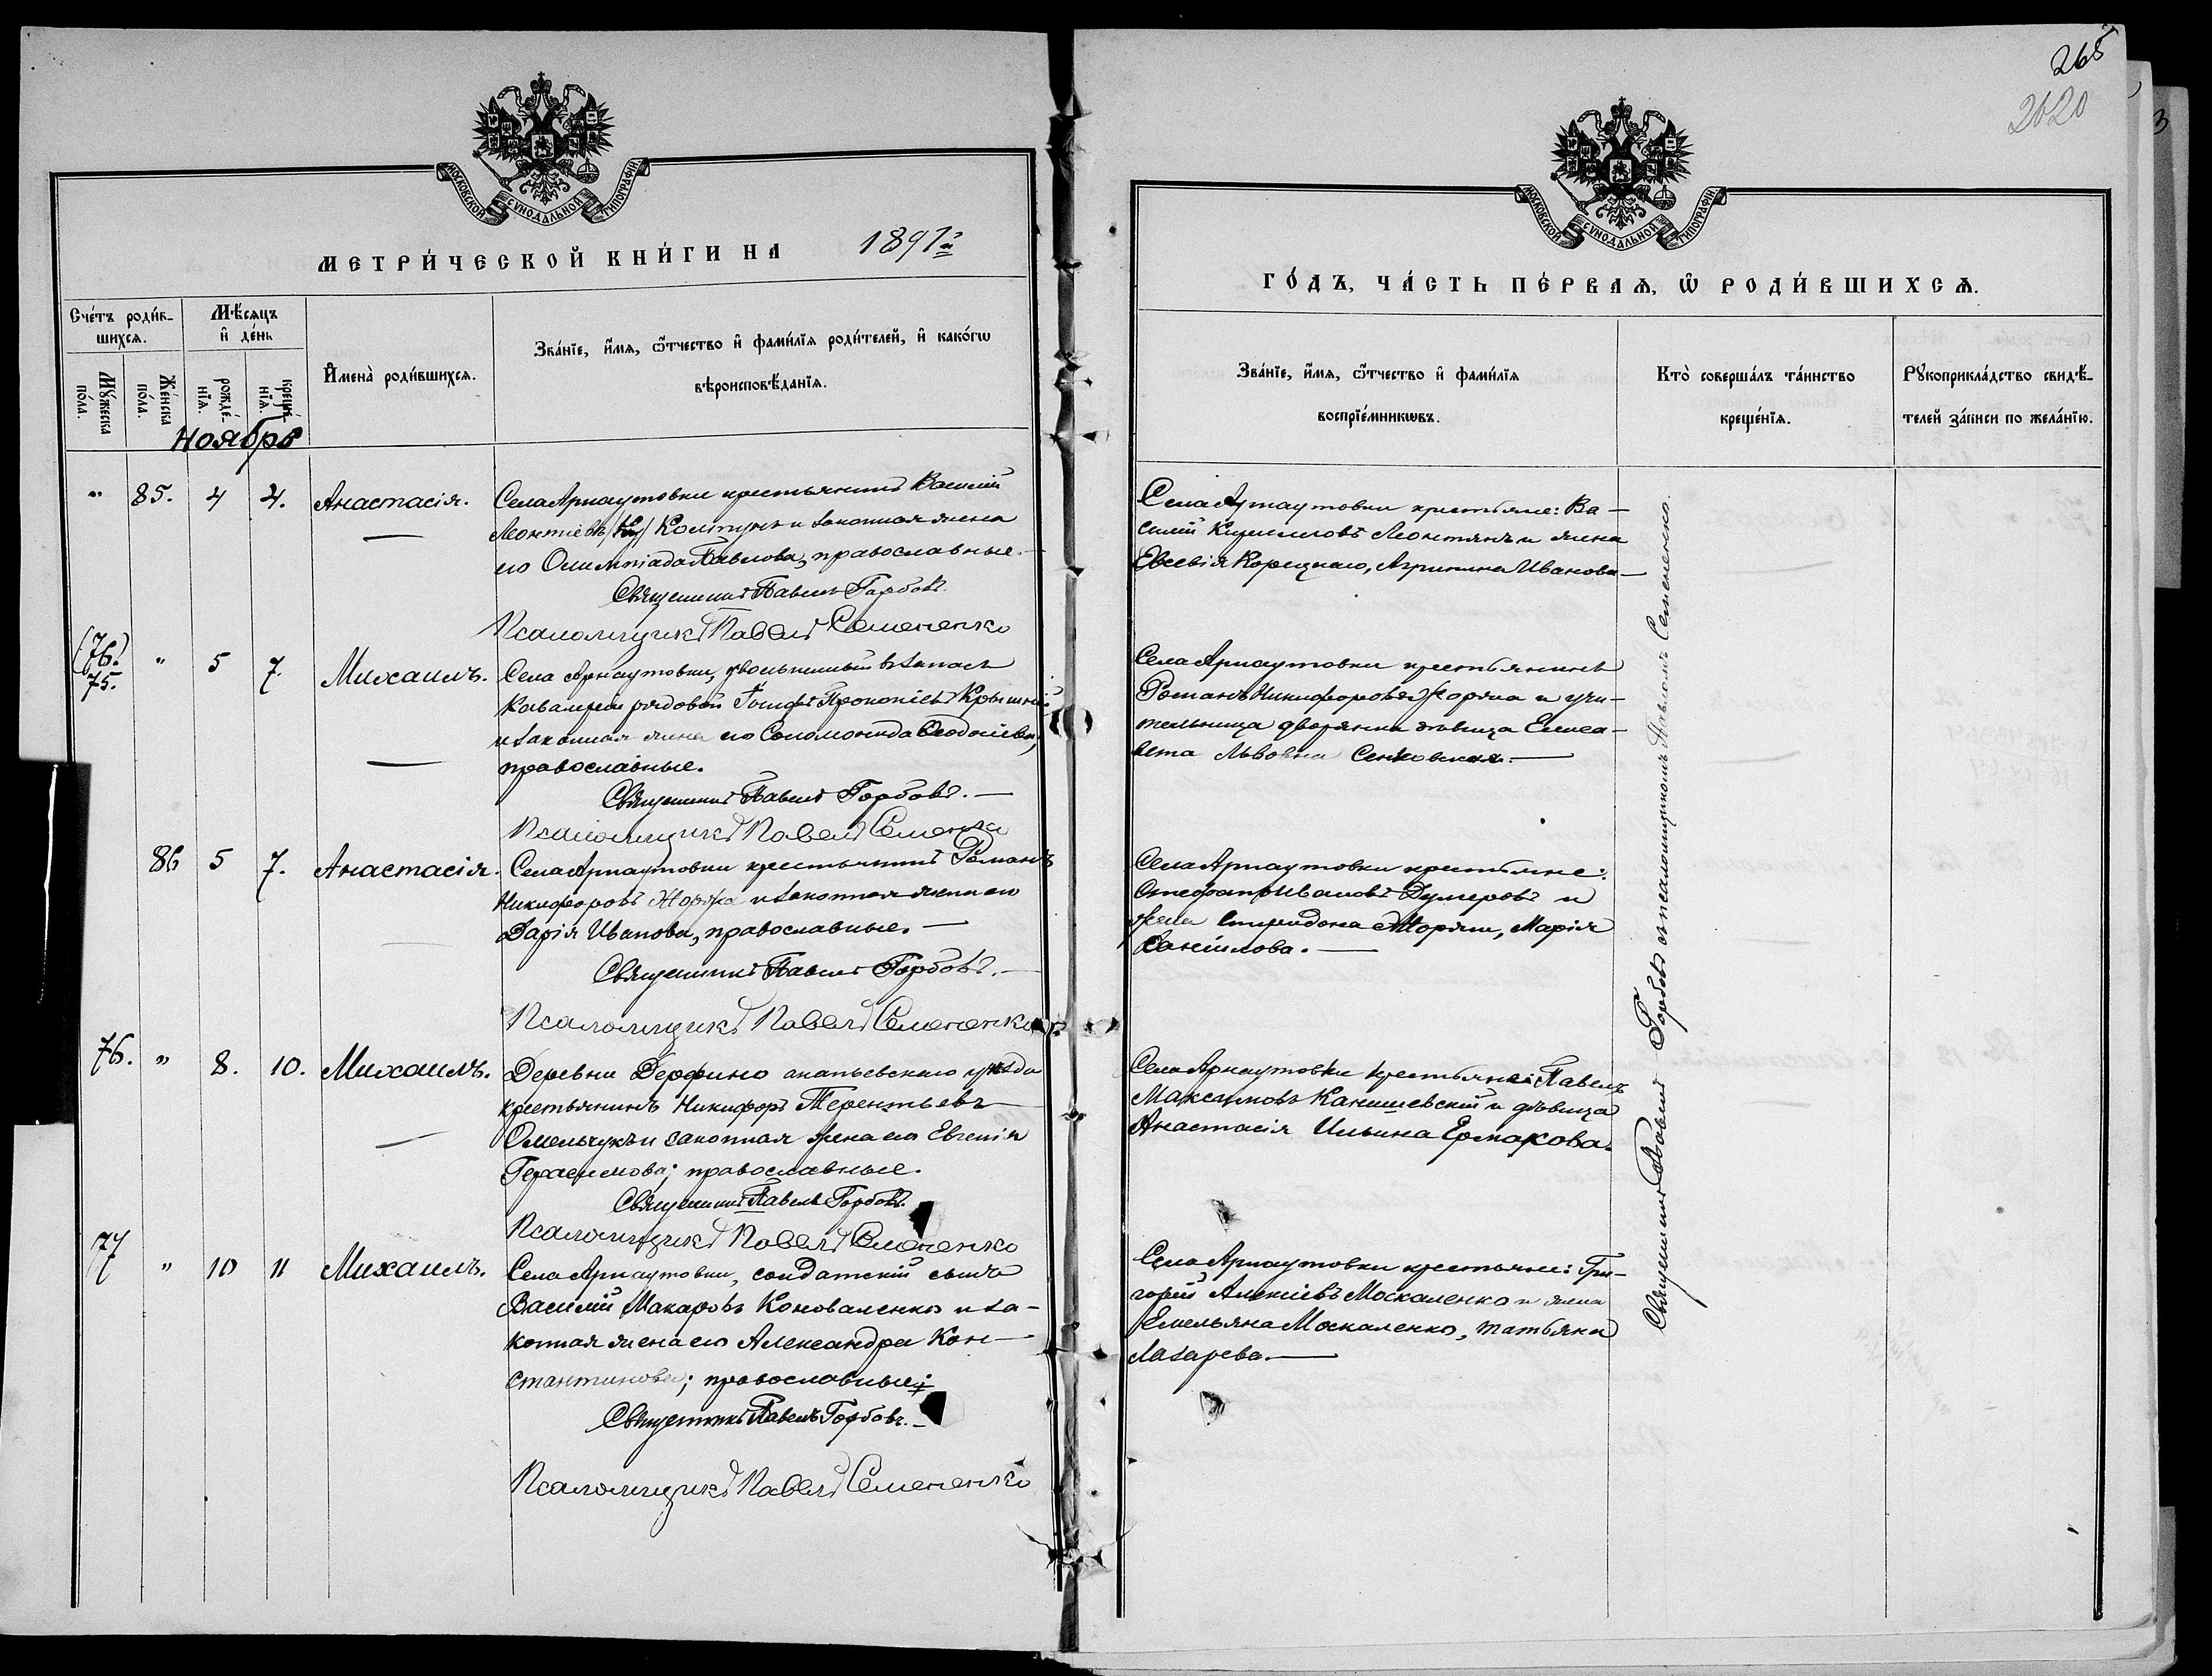 265
2620
МОСКОВСКОЙ СѴНОДАЛЬНОЙ ТИПОГРАФІИ
МЕТРИ́ЧЕСКОЙ КНИ́ГИ НА 1897й
Сче́тъ роди́в-
шихсѧ.
Мꙋ́жеска
по́ла.
Же́нска
по́ла.
Мѣ́сѧцъ
и҆ де́нь
рожде́-
нїѧ.
креще́-
нїѧ.
И҆мена̀ роди́вшихсѧ.
Зва́нїе, и҆́мѧ, ѻ҆́тчество и҆ фами́лїѧ роди́телей, и҆ како́гѡ
вѣроисповѣ́данїѧ.
Ноябрь
" 85. 4 4. Анастасія.
Села Арнаутовки крестьянинъ Василій
Леонтіевъ Колтунъ и законная жена
его Олимпіада Павлова, православные.
Священникъ Павелъ Горбовъ.
Псаломщикъ Павелъ Семененко
(76.)
75. " 5 7. Михаилъ.
Села Арнаутовки, уволенный въ запасъ
Кавалеріи рядовой Іосифъ Прокопіевъ
и законная жена его Соломонида Ѳеодосіева,
православные.
Священникъ Павелъ Горбовъ.
Псаломщикъ Павелъ Семененко
86 5 7. Анастасія.
Села Арнаутовки крестьянинъ Романъ
Никифоровъ Жоржа и законная жена его
Дарія Иванова, православные.
Священникъ Павелъ Горбовъ.
Псаломщикъ Павелъ Семененко
76. " 8. 10. Михаилъ.
Деревни Дерфино ананьевскаго уѣзда
крестьянинъ Никифоръ Терентьевъ
Омельчукъ и законная жена его Евгенія
Герасимова; православные.
Священникъ Павелъ Горбовъ.
Псаломщикъ Павелъ Семененко
77 " 10 11 Михаилъ.
Села Арнаутовки, солдатскій сынъ
Василій Макаровъ Коноваленко и за-
конная жена его Александра Кон-
стантинова; православные.
Священникъ Павелъ Горбовъ.
Псаломщикъ Павелъ Семененко
МОСКОВСКОЙ СѴНОДАЛЬНОЙ ТИПОГРАФІИ
ГО́ДЪ, ЧА́СТЬ ПЕ́РВАѦ, Ѡ҆ РОДИ́ВШИХСѦ.
Зва́нїе, и҆́мѧ, ѻ҆́тчество и҆ фами́лїѧ
воспрїе́мникѡвъ.
Кто̀ соверша́лъ та́инство
креще́нїѧ.
Рꙋкоприкла́дство свидѣ́-
телей за́писи по жела́нїю.
Села Арнаутовки крестьяне: Ва-
силій Кирилловъ Леонтянъ и жена
Евсевія Корецкаго, Агрипина Иванова
Села Арнаутовки крестьянинъ
Романъ Никифоровъ Жоржа и учи-
тельница дворянка дѣвица Елиса-
вета Львовна Сенковская.
Села Арнаутовки крестьяне:
Стефанъ Ивановъ Думеровъ и
жена Спиридона Жоржи, Марія
Даніилова.
Села Арнаутовки крестьяне: Павелъ
Максимовъ Канишевскій и дѣвица
Анастасія Ильина Ермакова.
Села Арнаутовки крестьяне: Гри-
горій Алексіевъ Москаленко и жена
Емельяна Москаленко, Татьяна
Лазарева.
Священникъ Павелъ Горбовъ съ псаломщикомъ Павломъ Семененко.